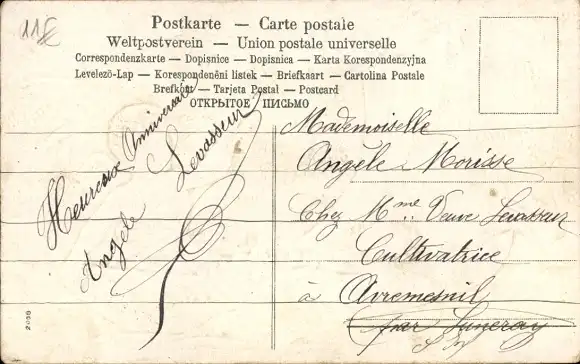 11€
Postkarte — Carte postale
Weltpostverein — Union postale universelle
Correspondenzkarte — Dopisnice — Dopisnica — Karta Korespondenzyjna
Levelezö-Lap — Korespondenčni listek — Briefkaart — Cartolina Postale
Brefkort — Tarjeta Postal — Postcard
ОТКРЫТОЕ ПИСЬМО
Heureux Anniversaire
Angèle Levasseur
Mademoiselle
Angèle Morisse
Chez Mme Veuve Levasseur
Cultivatrice
à Avremesnil
par Luneray
S. In
2008